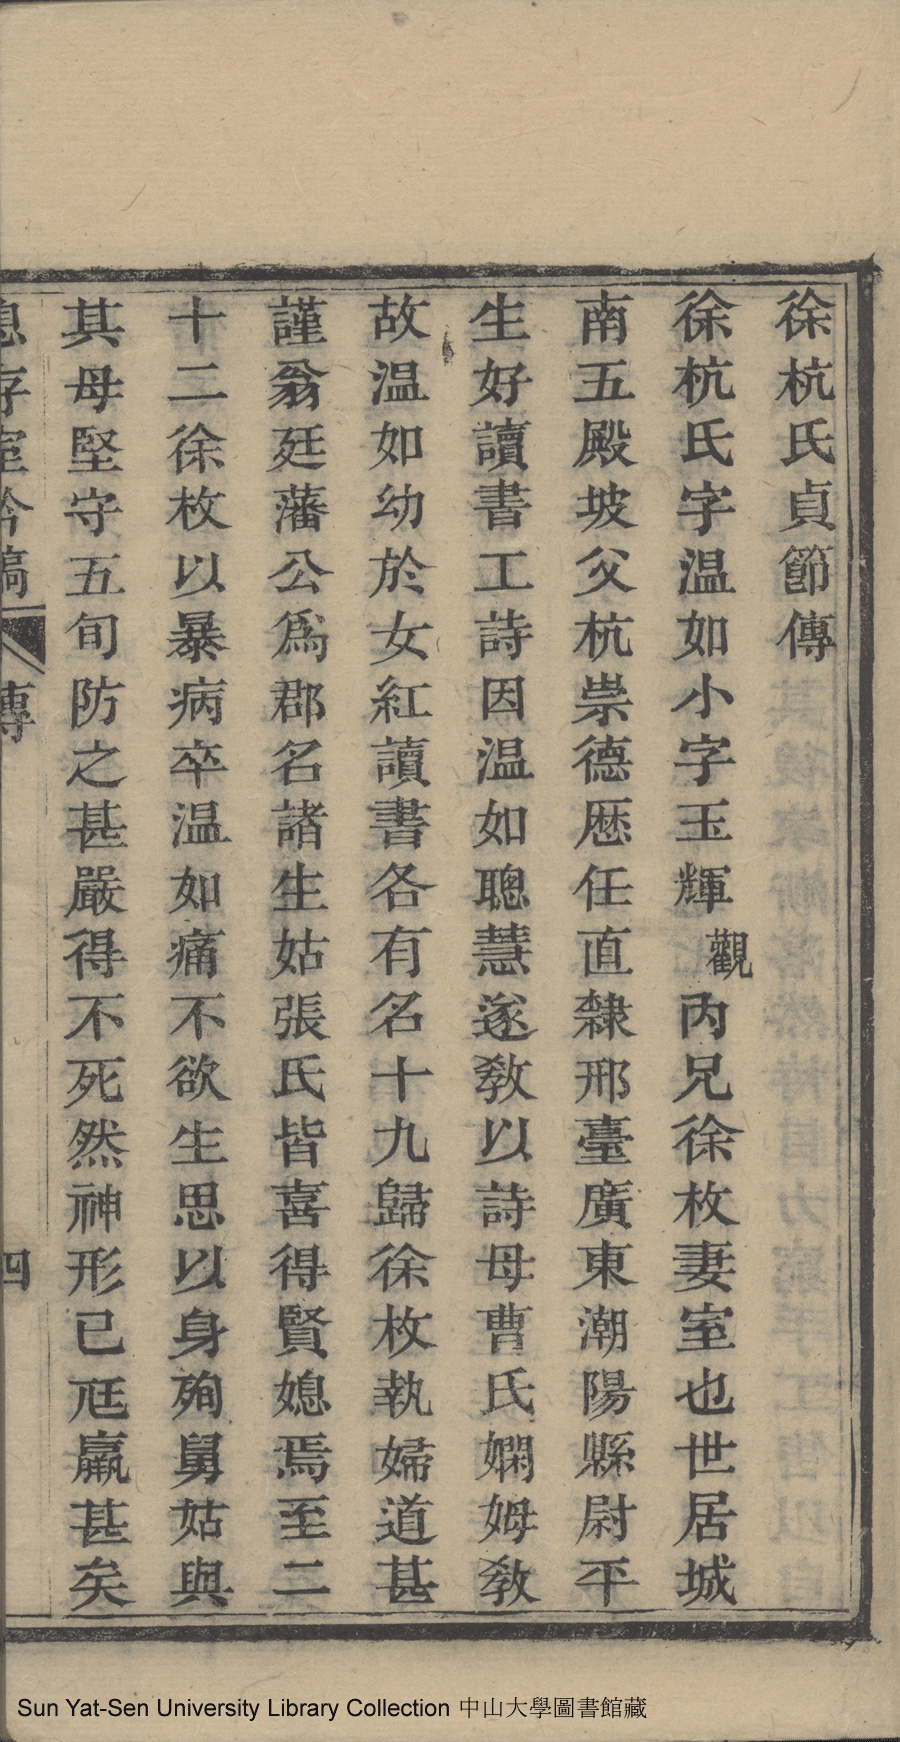 徐杭氏貞節傳
徐杭氏字温如小字玉輝觀內兄徐枚妻室也世居城
南五殿坡父杭崇德厯任直隸邢臺廣東潮陽縣尉平
生好讀書工詩因温如聰慧遂敎以詩母曹氏嫻姆敎
故温如幼於女紅讀書各有名十九歸徐枚執婦道甚
謹翁廷藩公爲郡名諸生姑張氏皆喜得賢媳焉至二
十二徐枚以暴病卒温如痛不欲生思以身殉舅姑與
其母堅守五旬防之甚嚴得不死然神形已尫羸甚矣
息存室吟稿 傳 四
Sun Yat-Sen University Library Collection 中山大學圖書館藏